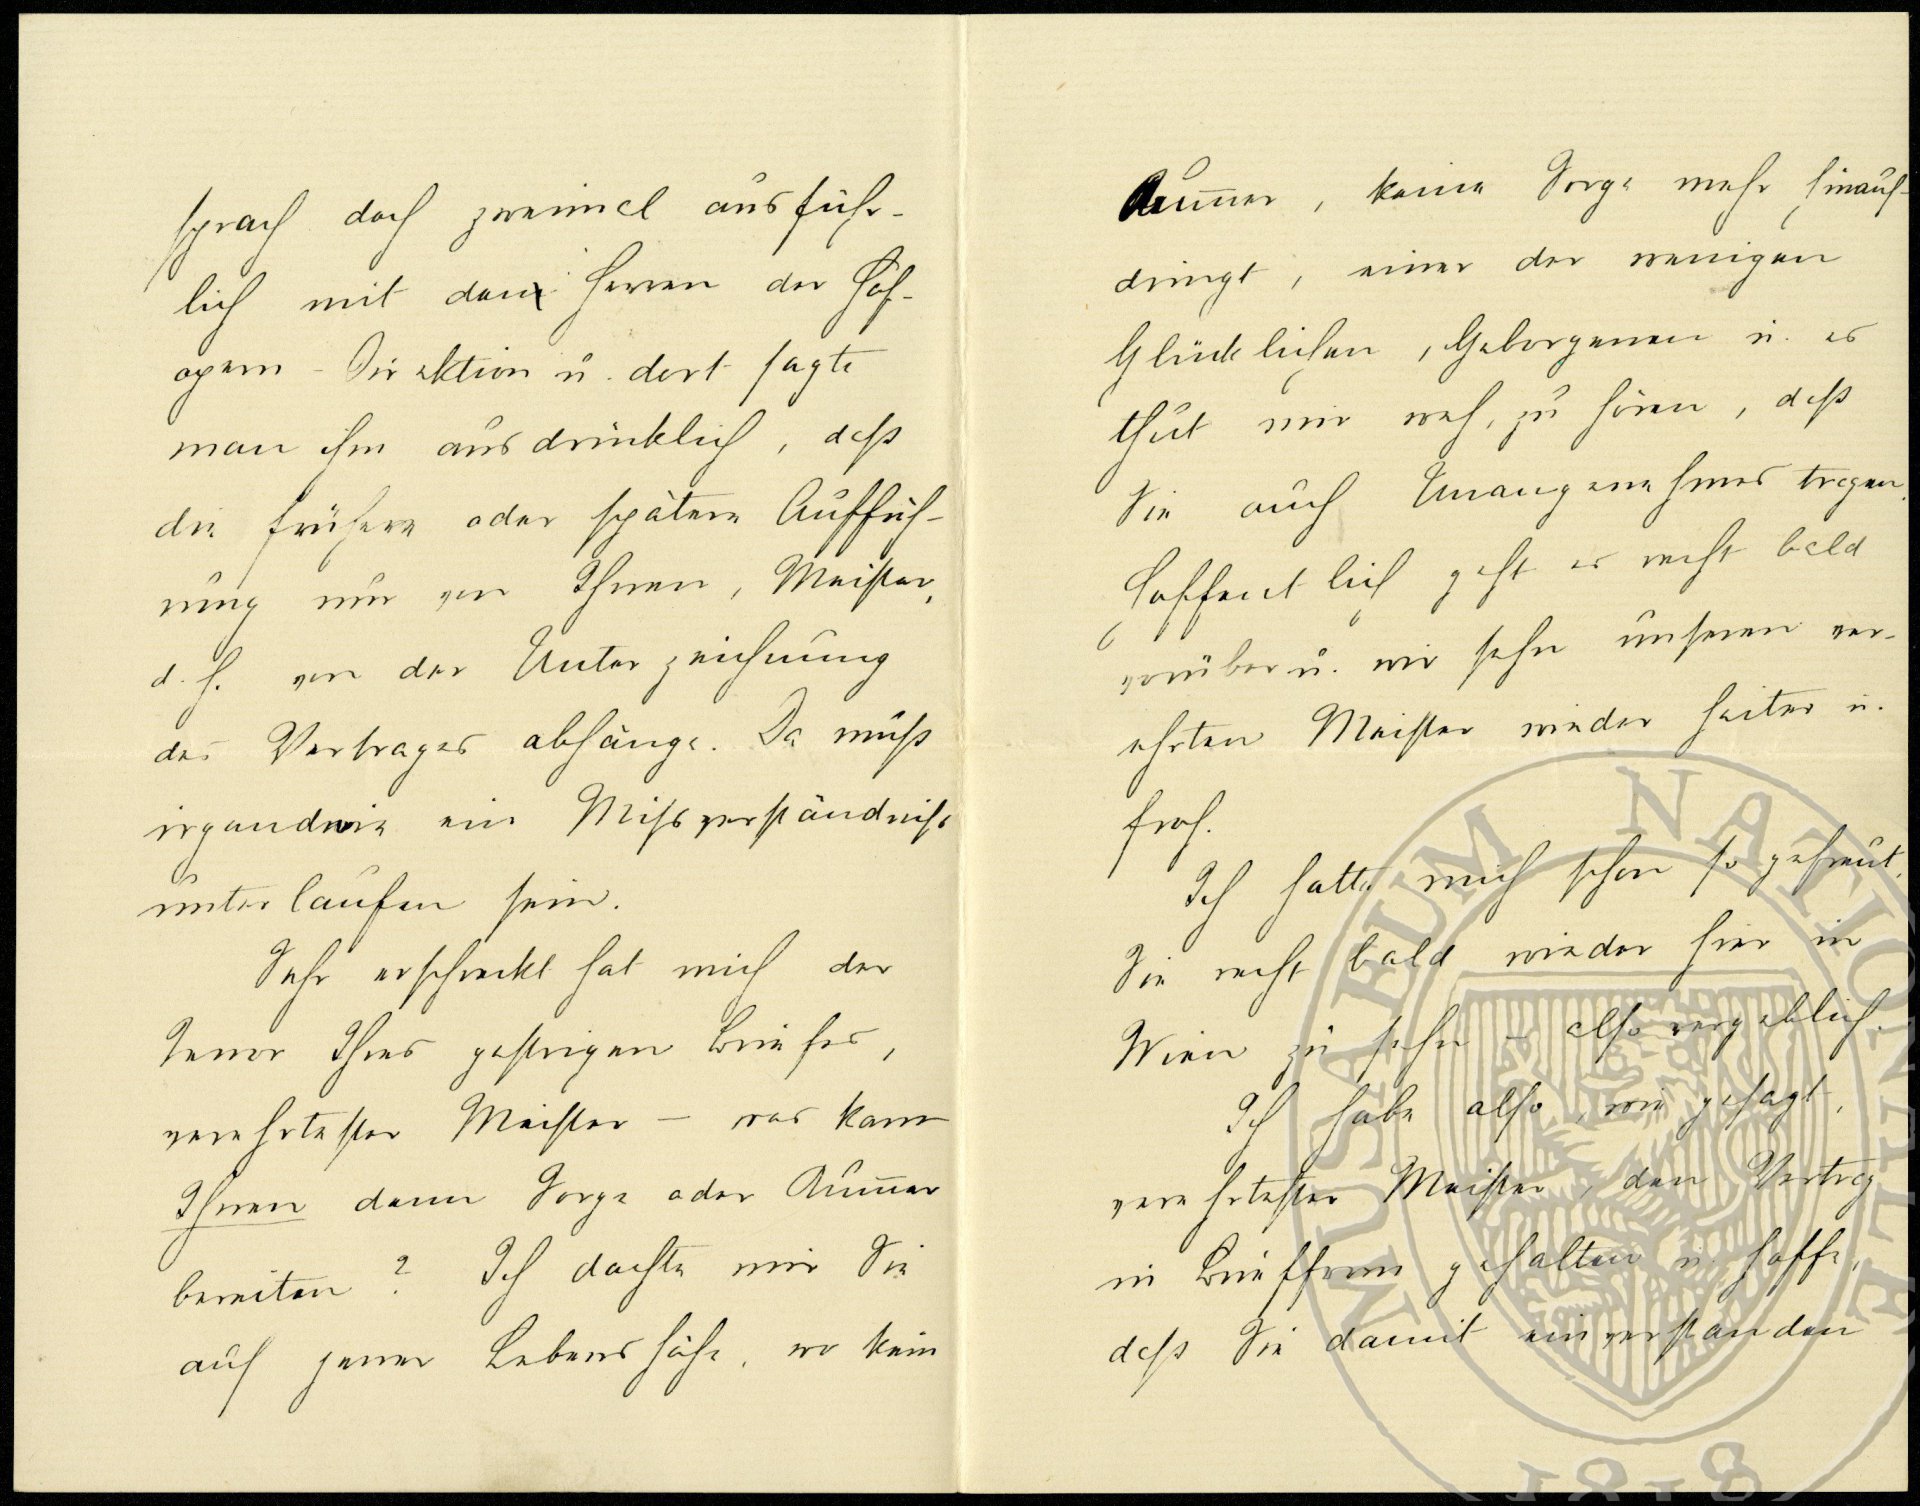 sprach doch zweimal ausführ-
lich mit den Herren der Hof-
opern-Direktion u. dort sagte
man ihm ausdrücklich, daß
die frühere oder spätere Auffüh-
rung nur von Ihnen, Meister,
d. h. von der Unterzeichnung
des Vertrages abhänge. Da muß
irgendwie ein Missverständniß
unterlaufen sein.
Sehr erschreckt hat mich der
Tenor Ihres gestrigen Briefes,
verehrtester Meister – was kann
Ihnen denn Sorge oder Kum̅er
bereiten? Ich dachte mir Sie
auf jener Lebenshöhe, wo kein
Kum̅er, keine Sorge mehr hinauf-
dringt, einer der wenigen
Glücklichen, Geborgenen u. es
thut mir weh, zu hören, daß
Sie auch Unangenehmes tragen.
Hoffentlich geht es recht bald
vorüber u. wir sehn unseren ver-
ehrten Meister wieder heiter u.
froh.
Ich hatte mich schon so gefreut,
Sie recht bald wieder hier in
Wien zu sehn – also vergeblich.
Ich habe also, wie gesagt,
verehrtester Meister, den Vertrag
in Briefform gehalten u. hoffe,
daß Sie damit einverstanden
MUSAEUM NATIONALE
1818